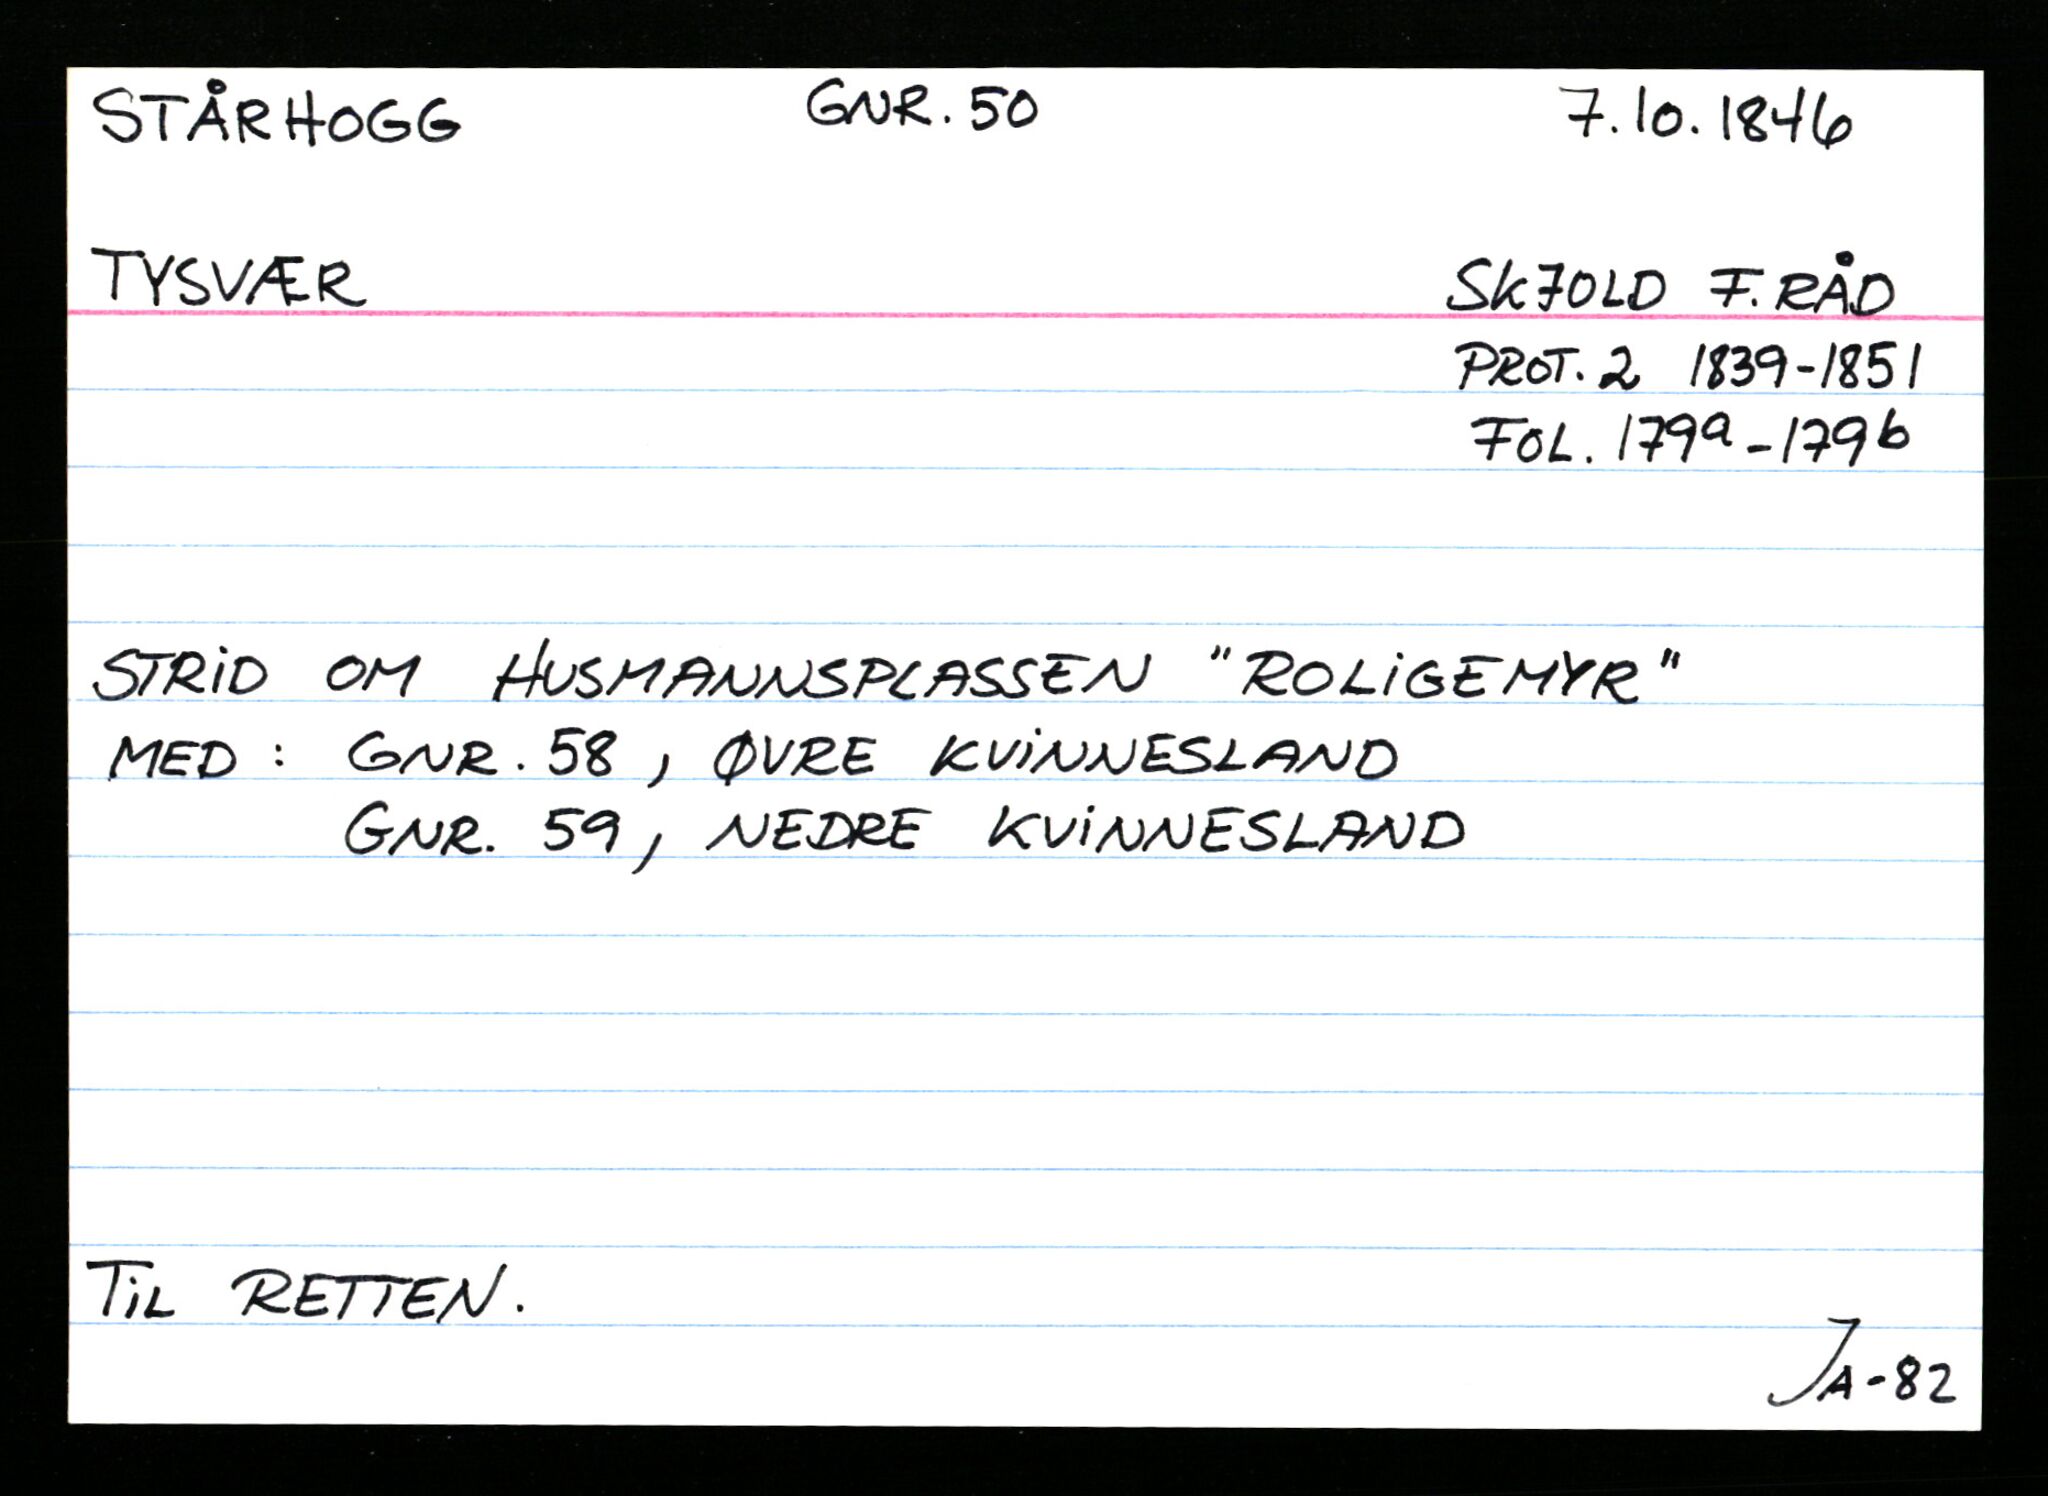 STÅRHOGG GNR. 50 7.10.1846
TYSVÆR SKJOLD F.RÅD
PROT. 2 1839-1851
FOL. 179a-179b
STRID OM HUSMANNSPLASSEN "ROLIGEMYR"
MED: GNR. 58, ØVRE KVINNESLAND
GNR. 59, NEDRE KVINNESLAND
TIL RETTEN.
JA-82